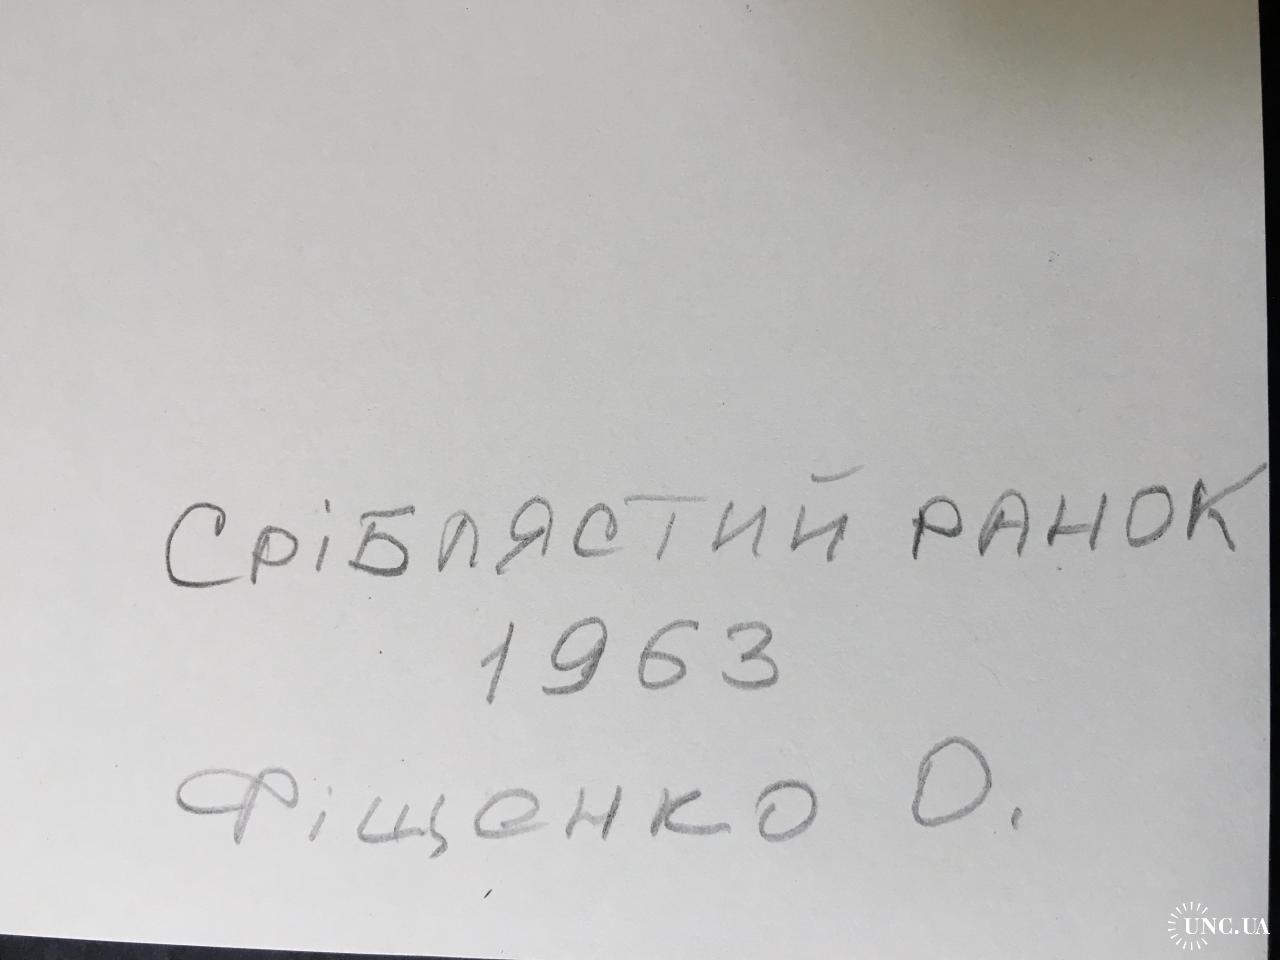 Сріблястий ранок
1963
Фіщенко О.
UNC.UA